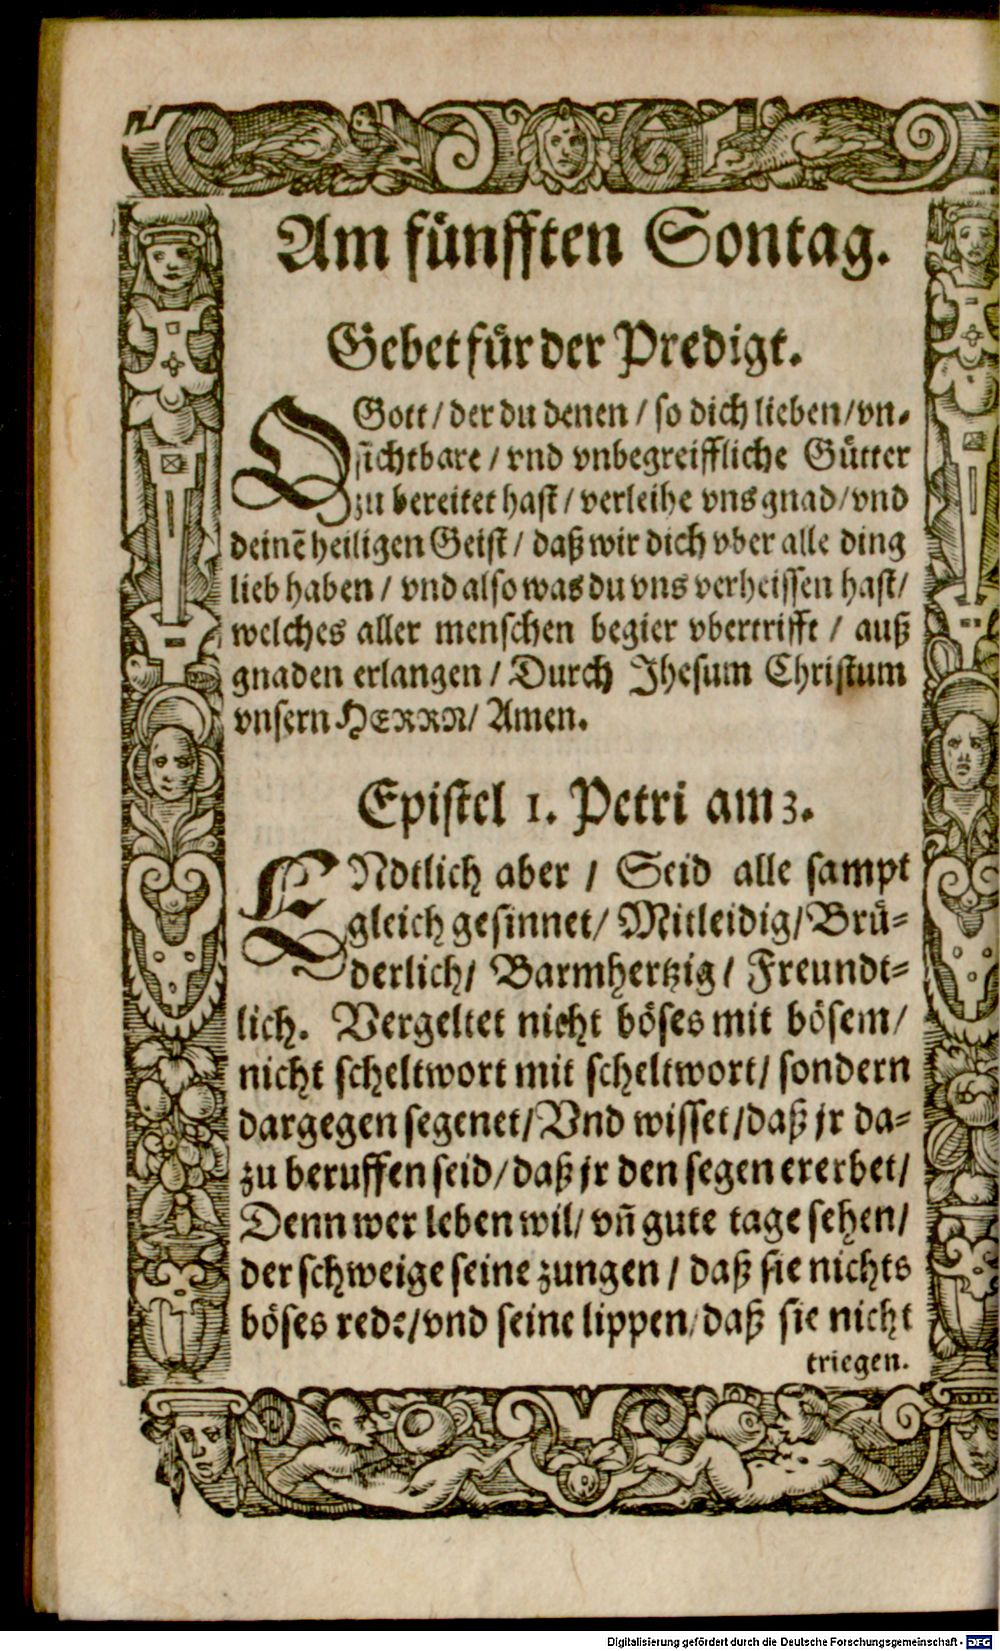 Am fünfften Sontag.
Gebet für der Predigt.
O Gott / der du denen / so dich lieben / vn-
sichtbare / vnd vnbegreiffliche Gütter
zu bereitet hast / verleihe vns gnad / vnd
deinē heiligen Geist / daß wir dich vber alle ding
lieb haben / vnd also was du vns verheissen hast /
welches aller menschen begier vbertrifft / auß
gnaden erlangen / Durch Jhesum Christum
vnsern HERRN / Amen.
Epistel 1. Petri am 3.
ENdtlich aber / Seid alle sampt
gleich gesinnet / Mitleidig / Brü-
derlich / Barmhertzig / Freundt-
lich. Vergeltet nicht böses mit bösem /
nicht scheltwort mit scheltwort / sondern
dargegen segenet / Vnd wisset / daß jr da-
zu beruffen seid / daß jr den segen ererbet /
Denn wer leben wil / vn̄ gute tage sehen /
der schweige seine zungen / daß sie nichts
böses rede / vnd seine lippen / daß sie nicht
triegen.
Digitalisierung gefördert durch die Deutsche Forschungsgemeinschaft - DFG